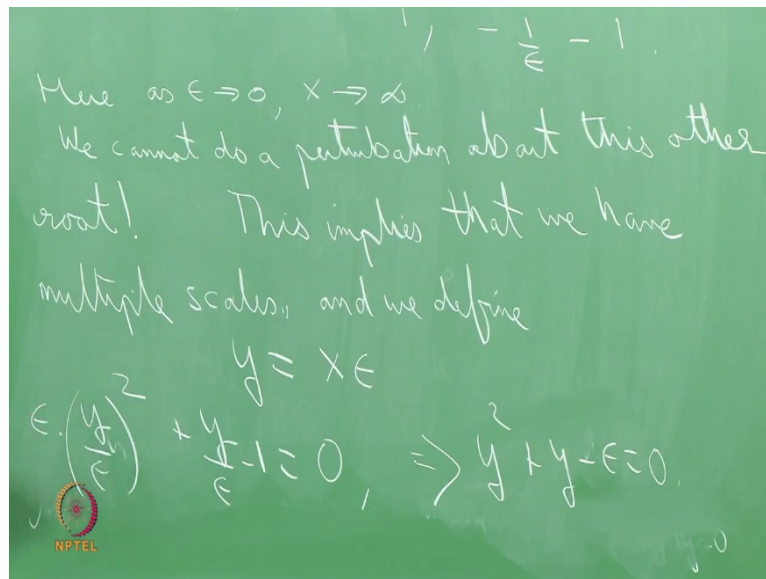 1, - 1/ϵ - 1.
Here as ϵ → 0, x → ∞
We cannot do a perturbation about this other
root! This implies that we have
multiple scales, and we define
y = xϵ
ϵ.(y/ϵ)² + y/ϵ - 1 = 0, ⇒ y² + y - ϵ = 0.
NPTEL